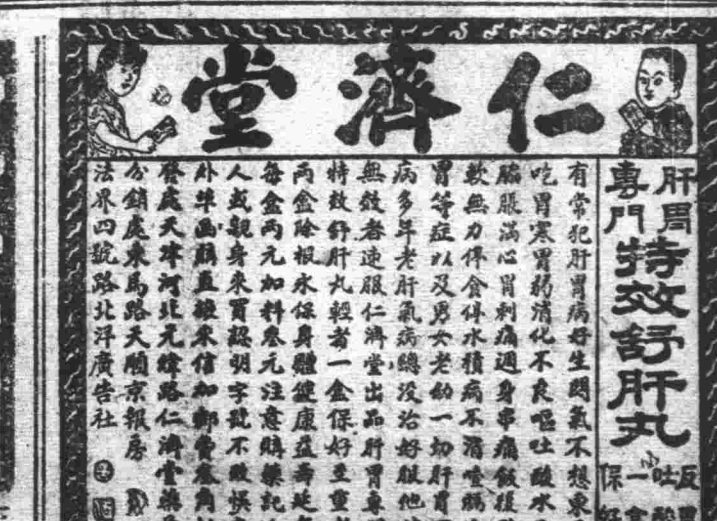 仁濟堂
肝胃
專門
特效舒肝丸
反胃
吐酸
小
一盒
保好
有常犯肝胃病好生悶氣不想東
吃胃寒胃弱消化不良嘔吐酸水
腦脹滿心胃刺痛週身串痛飯後
軟無力停食停水積病不消噎膈
胃等症以及男女老幼一切肝胃
病多年老肝氣病總沒治好服他
無效者速服仁濟堂出品肝胃專
特效舒肝丸輕者一盒保好至重
兩盒除根永保身體健康益壽延
每盒兩元加料叁元注意購藥記
人或親身來買認明字號不致悞
外埠函購直接來信加郵費叁角
發處天津河北元緯路仁濟堂藥
分銷處東馬路天順京報房
法界四號路北洋廣告社